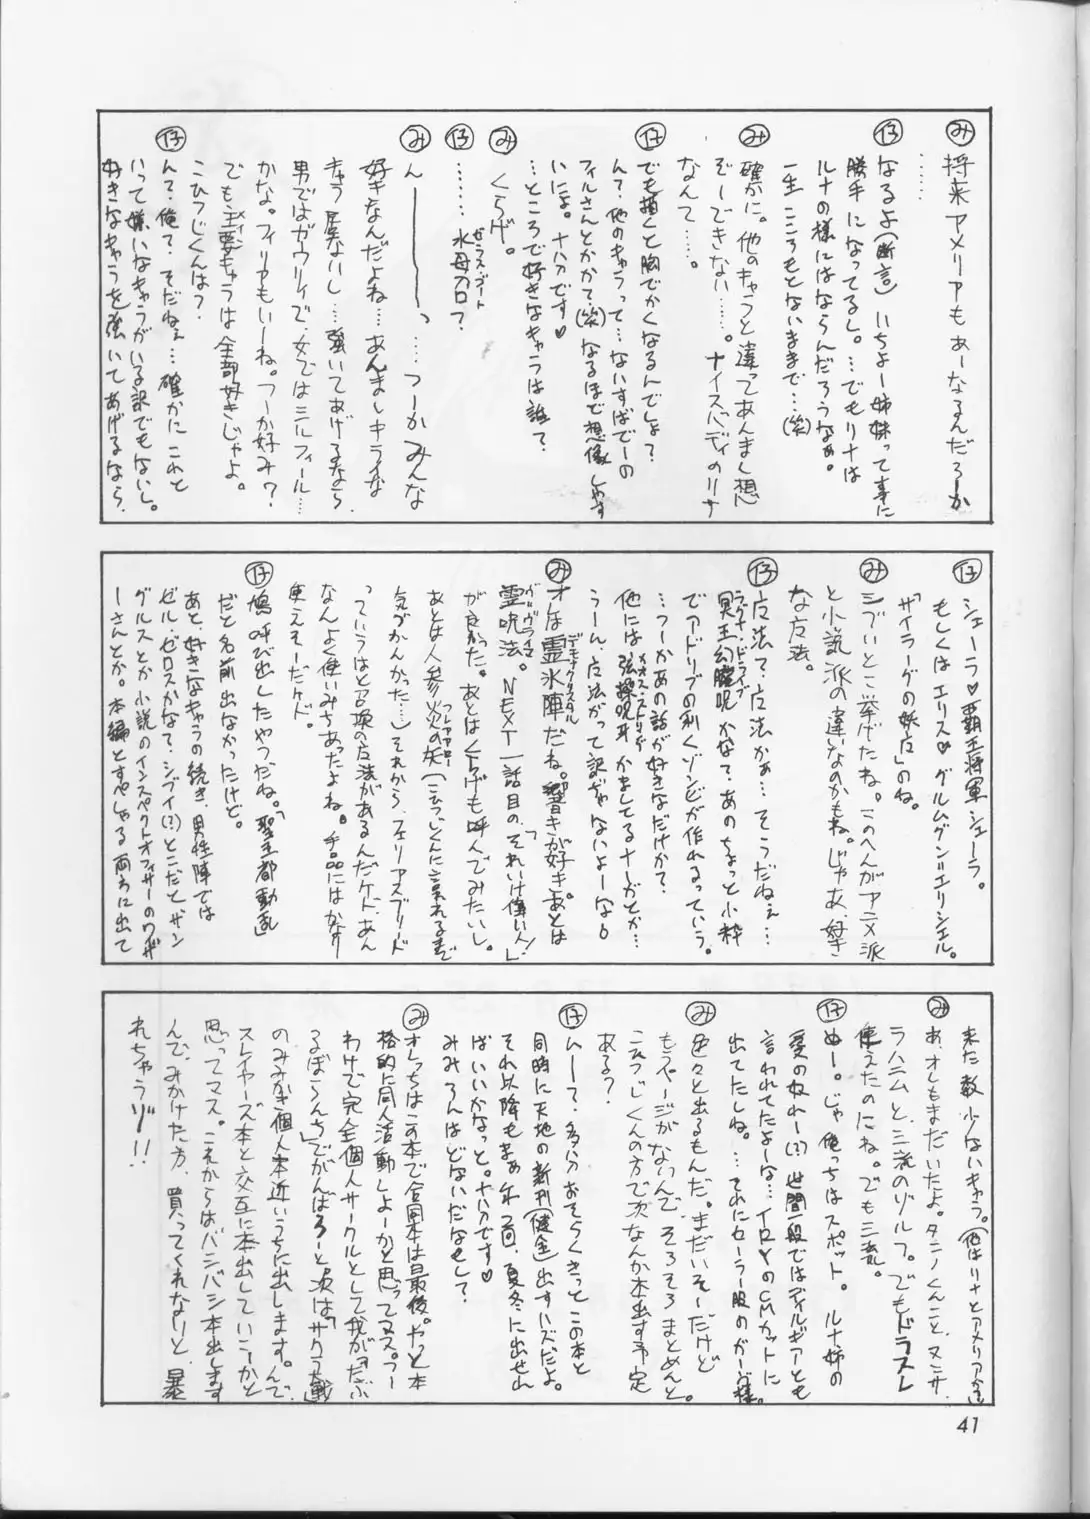 み 将来アメリアもあーなるんだろーか
……
仔 なるよ(断言)いちよー姉妹って事に
勝手になってるし。…でもリナは
ルナの様にはならんだろうなぁ。
一生こころもとないままで…(笑)
み 確かに。他のキャラと違ってあんまし想
ぞーできない……。ナイスバディのリナ
なんて……。
仔 でも描くと胸でかくなるんでしょ?
んで、他のキャラって…ないすばでーの
フィルさんとかかて、(笑)なるほど想像しやす
いにょ。ナハハです♡
…ところで好きなキャラは誰?
み くらげ。
仔 ……水母刀口?
み ん————っ……つーかみんな
好きなんだよね…あんましキライな
きゃら居ないし…強いてあげるなら
男ではガウリイで、女ではミルフィール…
かな。フィリアもいーね。つーか好み?
でも、主要キャラは全部好きじゃよ。
メイン
こひつじくんは?
仔 んで、俺?そだねぇ…確かにこれと
いって嫌いなキャラがいる訳でもないし。
好きなキャラを強いてあげるなら、
仔 シェーラ♡覇王将軍シェーラ。
もしくはエリス♡グルムグン=エリシエル。
「ザイラーグの妖兵」のね。
み シブいとこ挙げたね。このへんがアニメ派
と小説派の違いなのかもね。じゃあ、好き
な方法。
仔 方法?方法かぁ…そうだねぇ…
冥王幻朧呪かなて、あのちょっと小粋
ラグナ・ドライブ
でアドリブの利くゾンビが作れるっていう。
…つーかあの話が好きなだけか?
他には、強操呪弾かましてるナーガとか…
うーん、方法がって訳ぢゃないよーな。
み オレは霊氷陣だね。響きが好き。あとは
デモナクリスタル
霊呪法。NEXT一話目の、「それいけ偉い人!」
が良かった。あとはくらげも呼んでみたいし。
あとは人参火の矢(こひつじくんに言われるまで
フレアアロー
気づかんかった…)それから、フェリアスブリード
っていうはと召換の方法があるんだケド、あん
なんよく使いみちあったよね。手品にはかなり
使えそーだケド。
仔 鳩呼び出したやつだね。「聖王都動乱」
だと名前出なかったけど。
あと、好きなキャラの続き、男性陣では
ゼル、ゼロスかなて、シブイ(?)とこだとザン
グルスとか小説のインスペクトオフィサーのワイザ
ーさんとか。本編とすぺしゃる両方に出て
来た数少ないキャラ。(他はリナとアメリアか)
み あ、オレもまだいたよ。タニノくんこと、ヌンサ、
ラハニムと、三流のゾルフ。でもドラスレ
使えたのにね。でも三流。
仔 ぬー。じゃ俺っちはスポット。ルナ姉の
愛の奴れー(?)世間一般ではディルギアとも
言われてたよーな…イロんのCMカットに
出てたしね。…それにセーラー服のガーヴ様。
み 色々と出るもんだ。まだいそーだけど
もうページがないんで、そろそろまとめんと。
こひつじくんの方で次なんか本出す予定
ある?
仔 ムーて、多分おそらくきっとこの本と
同時に天地の新刊(健全)出すハズだよ。
それ以降もまぁ年2回、夏冬に出せん
ばいいかなっと。ナハハです♡
みみろんはどないだなもして?
み オレっちはこの本で合同本は最後。やっと本
格的に同人活動しよーかと思ってマス。つー
わけで完全個人サークルとして我が「だぶ
るぼらんち」でがんばろーと次は「サクラ大戦」
のみみかき個人本近いうちに出します。んで、
スレイヤーズ本と交互に本出していこーかと
思ってマス。これからはバンバン本出します
んで、みかけた方、買ってくれないと、暴
れちゃうゾ!!
41